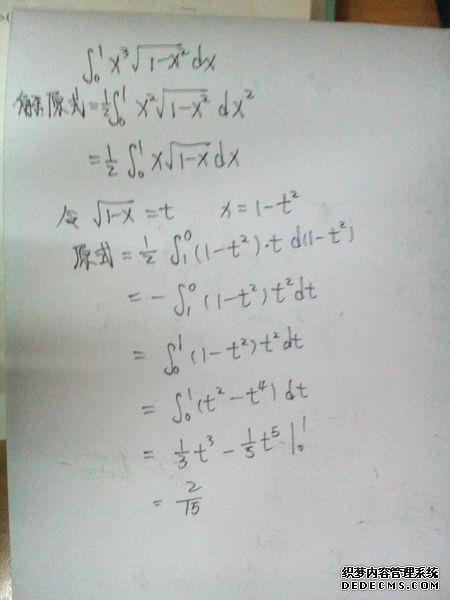 ∫₀¹ x³√(1-x²) dx
解原式=½∫₀¹ x²√(1-x²) dx²
=½ ∫₀¹ x√(1-x) dx
令 √(1-x) = t x = 1-t²
原式 = ½ ∫₁⁰ (1-t²)·t d(1-t²)
= - ∫₁⁰ (1-t²) t² dt
= ∫₀¹ (1-t²) t² dt
= ∫₀¹ (t² - t⁴) dt
= ⅓ t³ - ⅕ t⁵ |₀¹
= 2/15
织梦内容管理系统
DEDECMS.COM